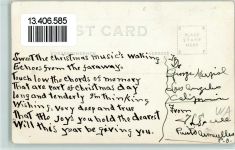 13.406.585
POST CARD
PLACE
STAMP
HERE
Sweet the christmas music's waking
Echoes from the faraway.
Touch low the chords of memory
That are part of christmas day
Long and tenderly I'm thinking
Wishing, very deep and true
That the Joys you hold the dearest
Will this year be giving you.
To
George
Los Angeles
California
From
WA
Punta